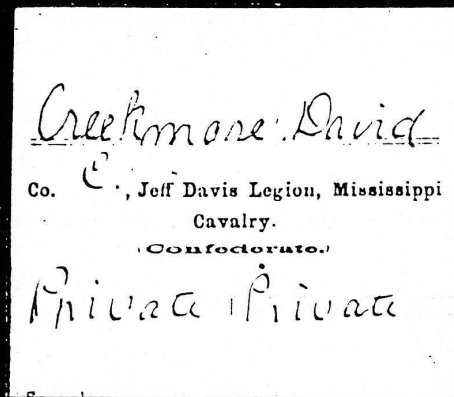 Creekmore David
Co. C., Jeff Davis Legion, Mississippi
Cavalry.
(Confederate.)
Private Private